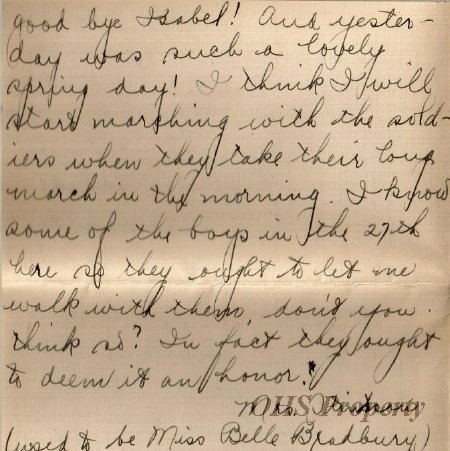 good bye Isabel! And yester-
day was such a lovely
spring day! I think I will
start marching with the sold-
iers when they take their long
march in the morning. I know
some of the boys in the 27th
here so they ought to let me
walk with them, don't you
think so? In fact they ought
to deem it an honor!
Mrs.
OHS Property
(used to be Miss Belle Bradbury)